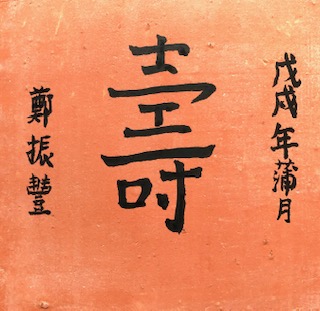 戊戌年蒲月
壽
鄭振豐